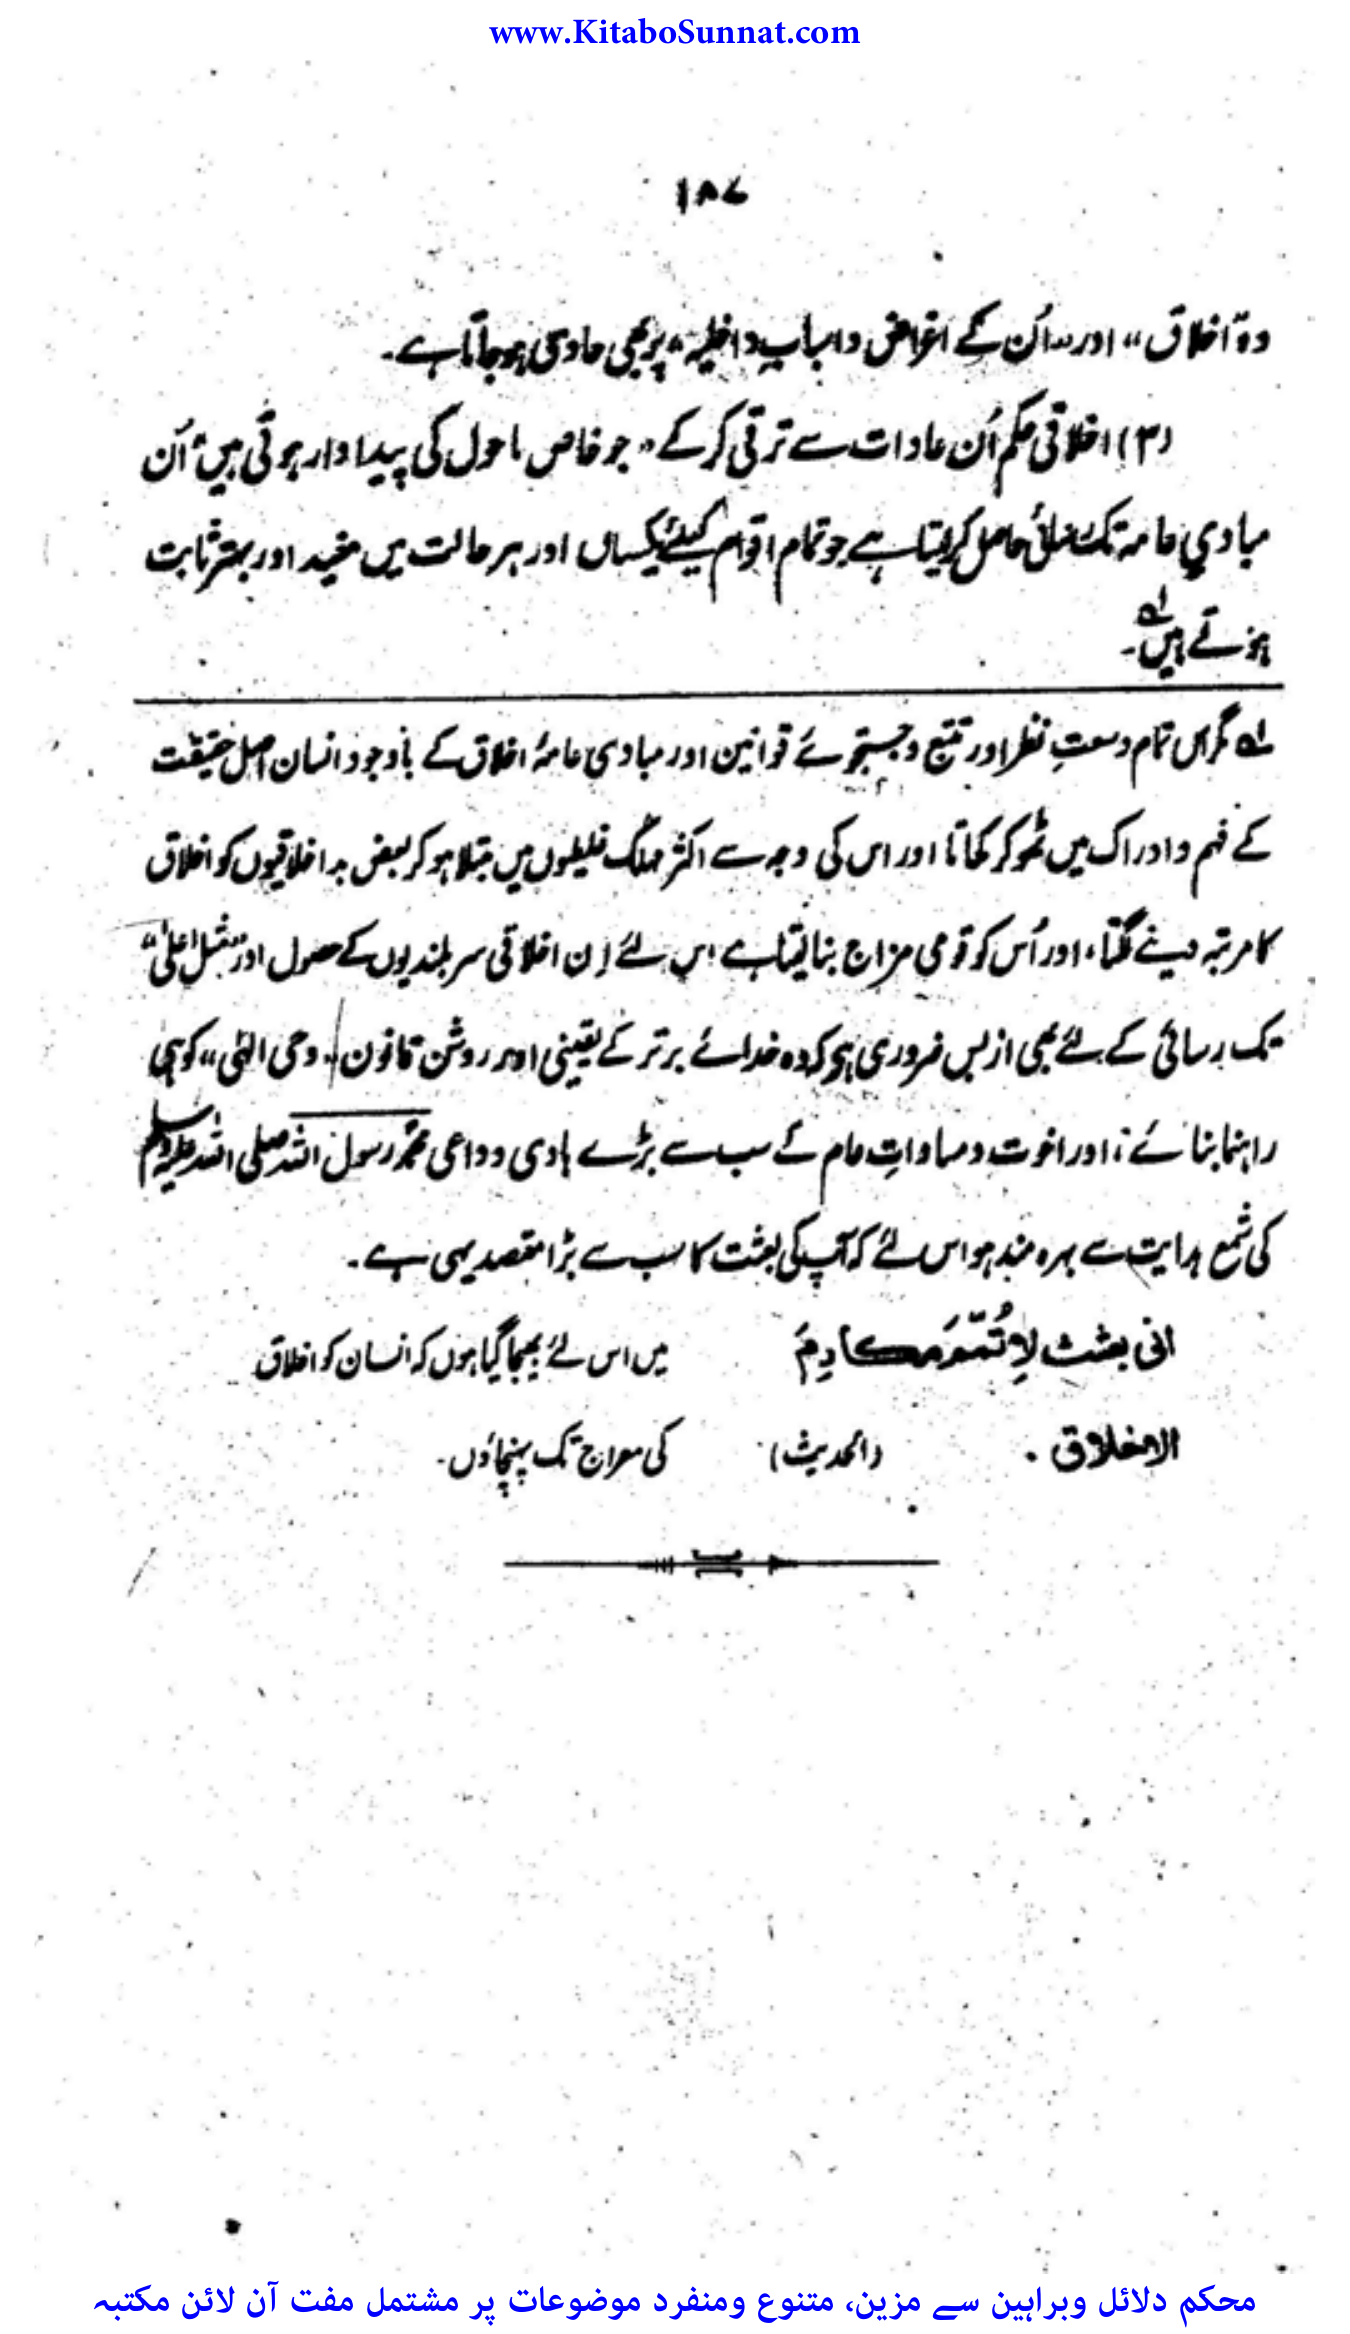 www.KitaboSunnat.com
۱۸۷
وہ اخلاق“ اور ”اُن کے اغراض و اسبابِ داخلیہ“ پر بھی حاوی ہو جاتا ہے۔
(۳) اخلاقی حکم اُن عادات سے ترقی کر کے ”جو خاص ماحول کی پیداوار ہوتی ہیں“ اُن
مبادیِ عامہ تک رسائی حاصل کر لیتا ہے جو تمام اقوام کیلئے یکساں اور ہر حالت میں مفید اور بہتر ثابت
ہوتے ہیں لہ۔
لہ مگر اس تمام وسعتِ نظر اور تتبع و جستجوئے قوانین اور مبادی عامۂ اخلاق کے باوجود انسان اصل حقیقت
کے فہم و ادراک میں ٹھوکر کھاتا اور اس کی وجہ سے اکثر مہلک غلطیوں میں مبتلا ہو کر بعض بد اخلاقیوں کو اخلاق
کا مرتبہ دینے لگتا، اور اُس کو قومی مزاج بنا لیتا ہے اس لئے اِن اخلاقی سر بلندیوں کے حصول اور ”مثل اعلیٰ“
تک رسائی کے لئے بھی از بس ضروری ہے کہ وہ خدائے برتر کے یقینی اور روشن قانون ”وحی الٰہی“ کو ہی
راہنما بنائے، اور اخوت و مساواتِ عام کے سب سے بڑے ہادی و داعی محمدؐ رسول اللہ صلی اللہ علیہ وسلم
کی شمع ہدایت سے بہرہ مند ہو اس لئے کہ آپ کی بعثت کا سب سے بڑا مقصد یہی ہے۔
انی بعثت لِاُتمّمَ مَکارِمَ میں اس لئے بھیجا گیا ہوں کہ انسان کو اخلاق
الاخلاق . (الحدیث) کی معراج تک پہنچاؤں۔
محکم دلائل وبراہین سے مزین، متنوع ومنفرد موضوعات پر مشتمل مفت آن لائن مکتبہ